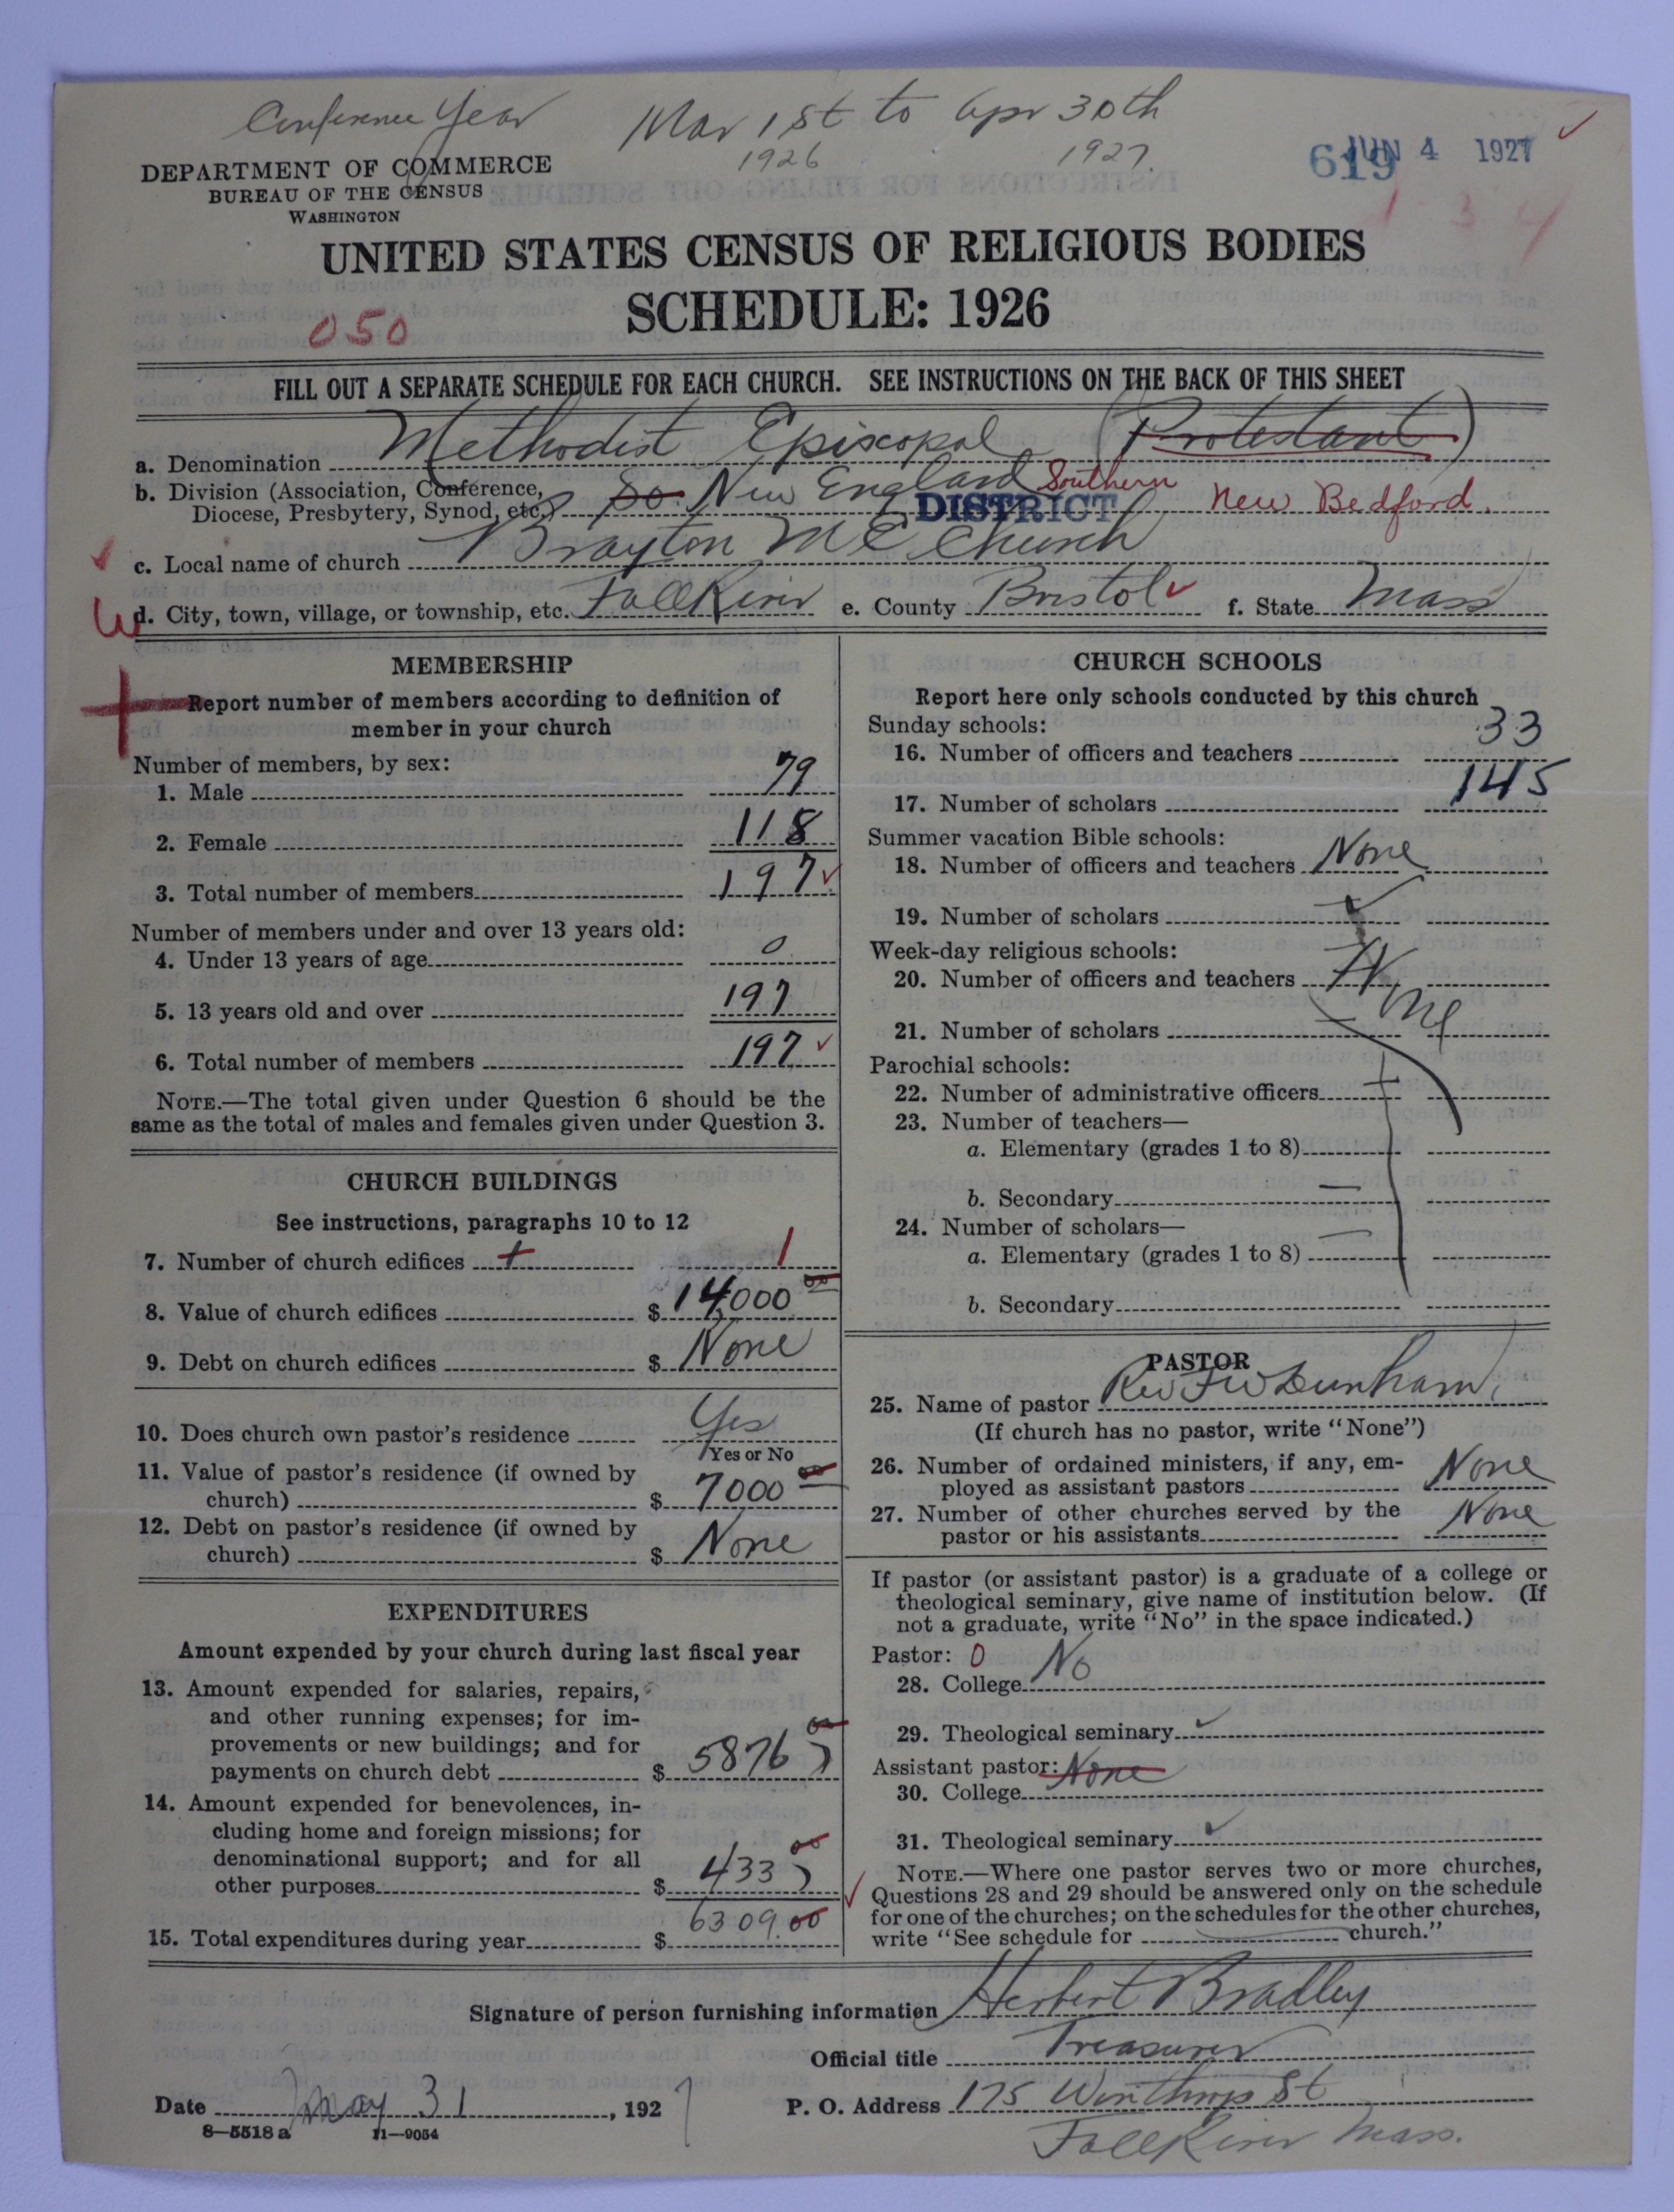 Conference Year Mar 1st to Apr 30th
1926 1927.
DEPARTMENT OF COMMERCE
BUREAU OF THE CENSUS
WASHINGTON
619 JUN 4 1927
1 3 4
UNITED STATES CENSUS OF RELIGIOUS BODIES
SCHEDULE: 1926
050
FILL OUT A SEPARATE SCHEDULE FOR EACH CHURCH. SEE INSTRUCTIONS ON THE BACK OF THIS SHEET
a. Denomination Methodist Episcopal (Protestant)
b. Division (Association, Conference, Diocese, Presbytery, Synod, etc.) So. New England Southern DISTRICT New Bedford.
c. Local name of church Brayton M E Church
d. City, town, village, or township, etc. Fall River e. County Bristol f. State Mass
MEMBERSHIP
Report number of members according to definition of
member in your church
Number of members, by sex:
1. Male 79
2. Female 118
3. Total number of members 197
Number of members under and over 13 years old:
4. Under 13 years of age 0
5. 13 years old and over 197
6. Total number of members 197
NOTE.—The total given under Question 6 should be the
same as the total of males and females given under Question 3.
CHURCH BUILDINGS
See instructions, paragraphs 10 to 12
7. Number of church edifices 1
8. Value of church edifices $ 14,000 00
9. Debt on church edifices $ None
10. Does church own pastor's residence Yes
Yes or No
11. Value of pastor's residence (if owned by
church) $ 7000 00
12. Debt on pastor's residence (if owned by
church) $ None
EXPENDITURES
Amount expended by your church during last fiscal year
13. Amount expended for salaries, repairs,
and other running expenses; for im-
provements or new buildings; and for
payments on church debt $ 5876 00
14. Amount expended for benevolences, in-
cluding home and foreign missions; for
denominational support; and for all
other purposes $ 433 00
15. Total expenditures during year $ 6309.00
CHURCH SCHOOLS
Report here only schools conducted by this church
Sunday schools:
16. Number of officers and teachers 33
17. Number of scholars 145
Summer vacation Bible schools:
18. Number of officers and teachers None
19. Number of scholars
Week-day religious schools:
20. Number of officers and teachers
21. Number of scholars
Parochial schools:
22. Number of administrative officers
23. Number of teachers—
a. Elementary (grades 1 to 8)
b. Secondary
24. Number of scholars—
a. Elementary (grades 1 to 8)
b. Secondary
PASTOR
25. Name of pastor Rev F W Dunham
(If church has no pastor, write "None")
26. Number of ordained ministers, if any, em-
ployed as assistant pastors None
27. Number of other churches served by the
pastor or his assistants None
If pastor (or assistant pastor) is a graduate of a college or
theological seminary, give name of institution below. (If
not a graduate, write "No" in the space indicated.)
Pastor: 0
28. College No
29. Theological seminary
Assistant pastor: None
30. College
31. Theological seminary
NOTE.—Where one pastor serves two or more churches,
Questions 28 and 29 should be answered only on the schedule
for one of the churches; on the schedules for the other churches,
write "See schedule for church."
Signature of person furnishing information Herbert Bradley
Official title Treasurer
Date May 31, 1927 P. O. Address 175 Winthrop St
8—5518 a 11—9054
Fall River Mass.